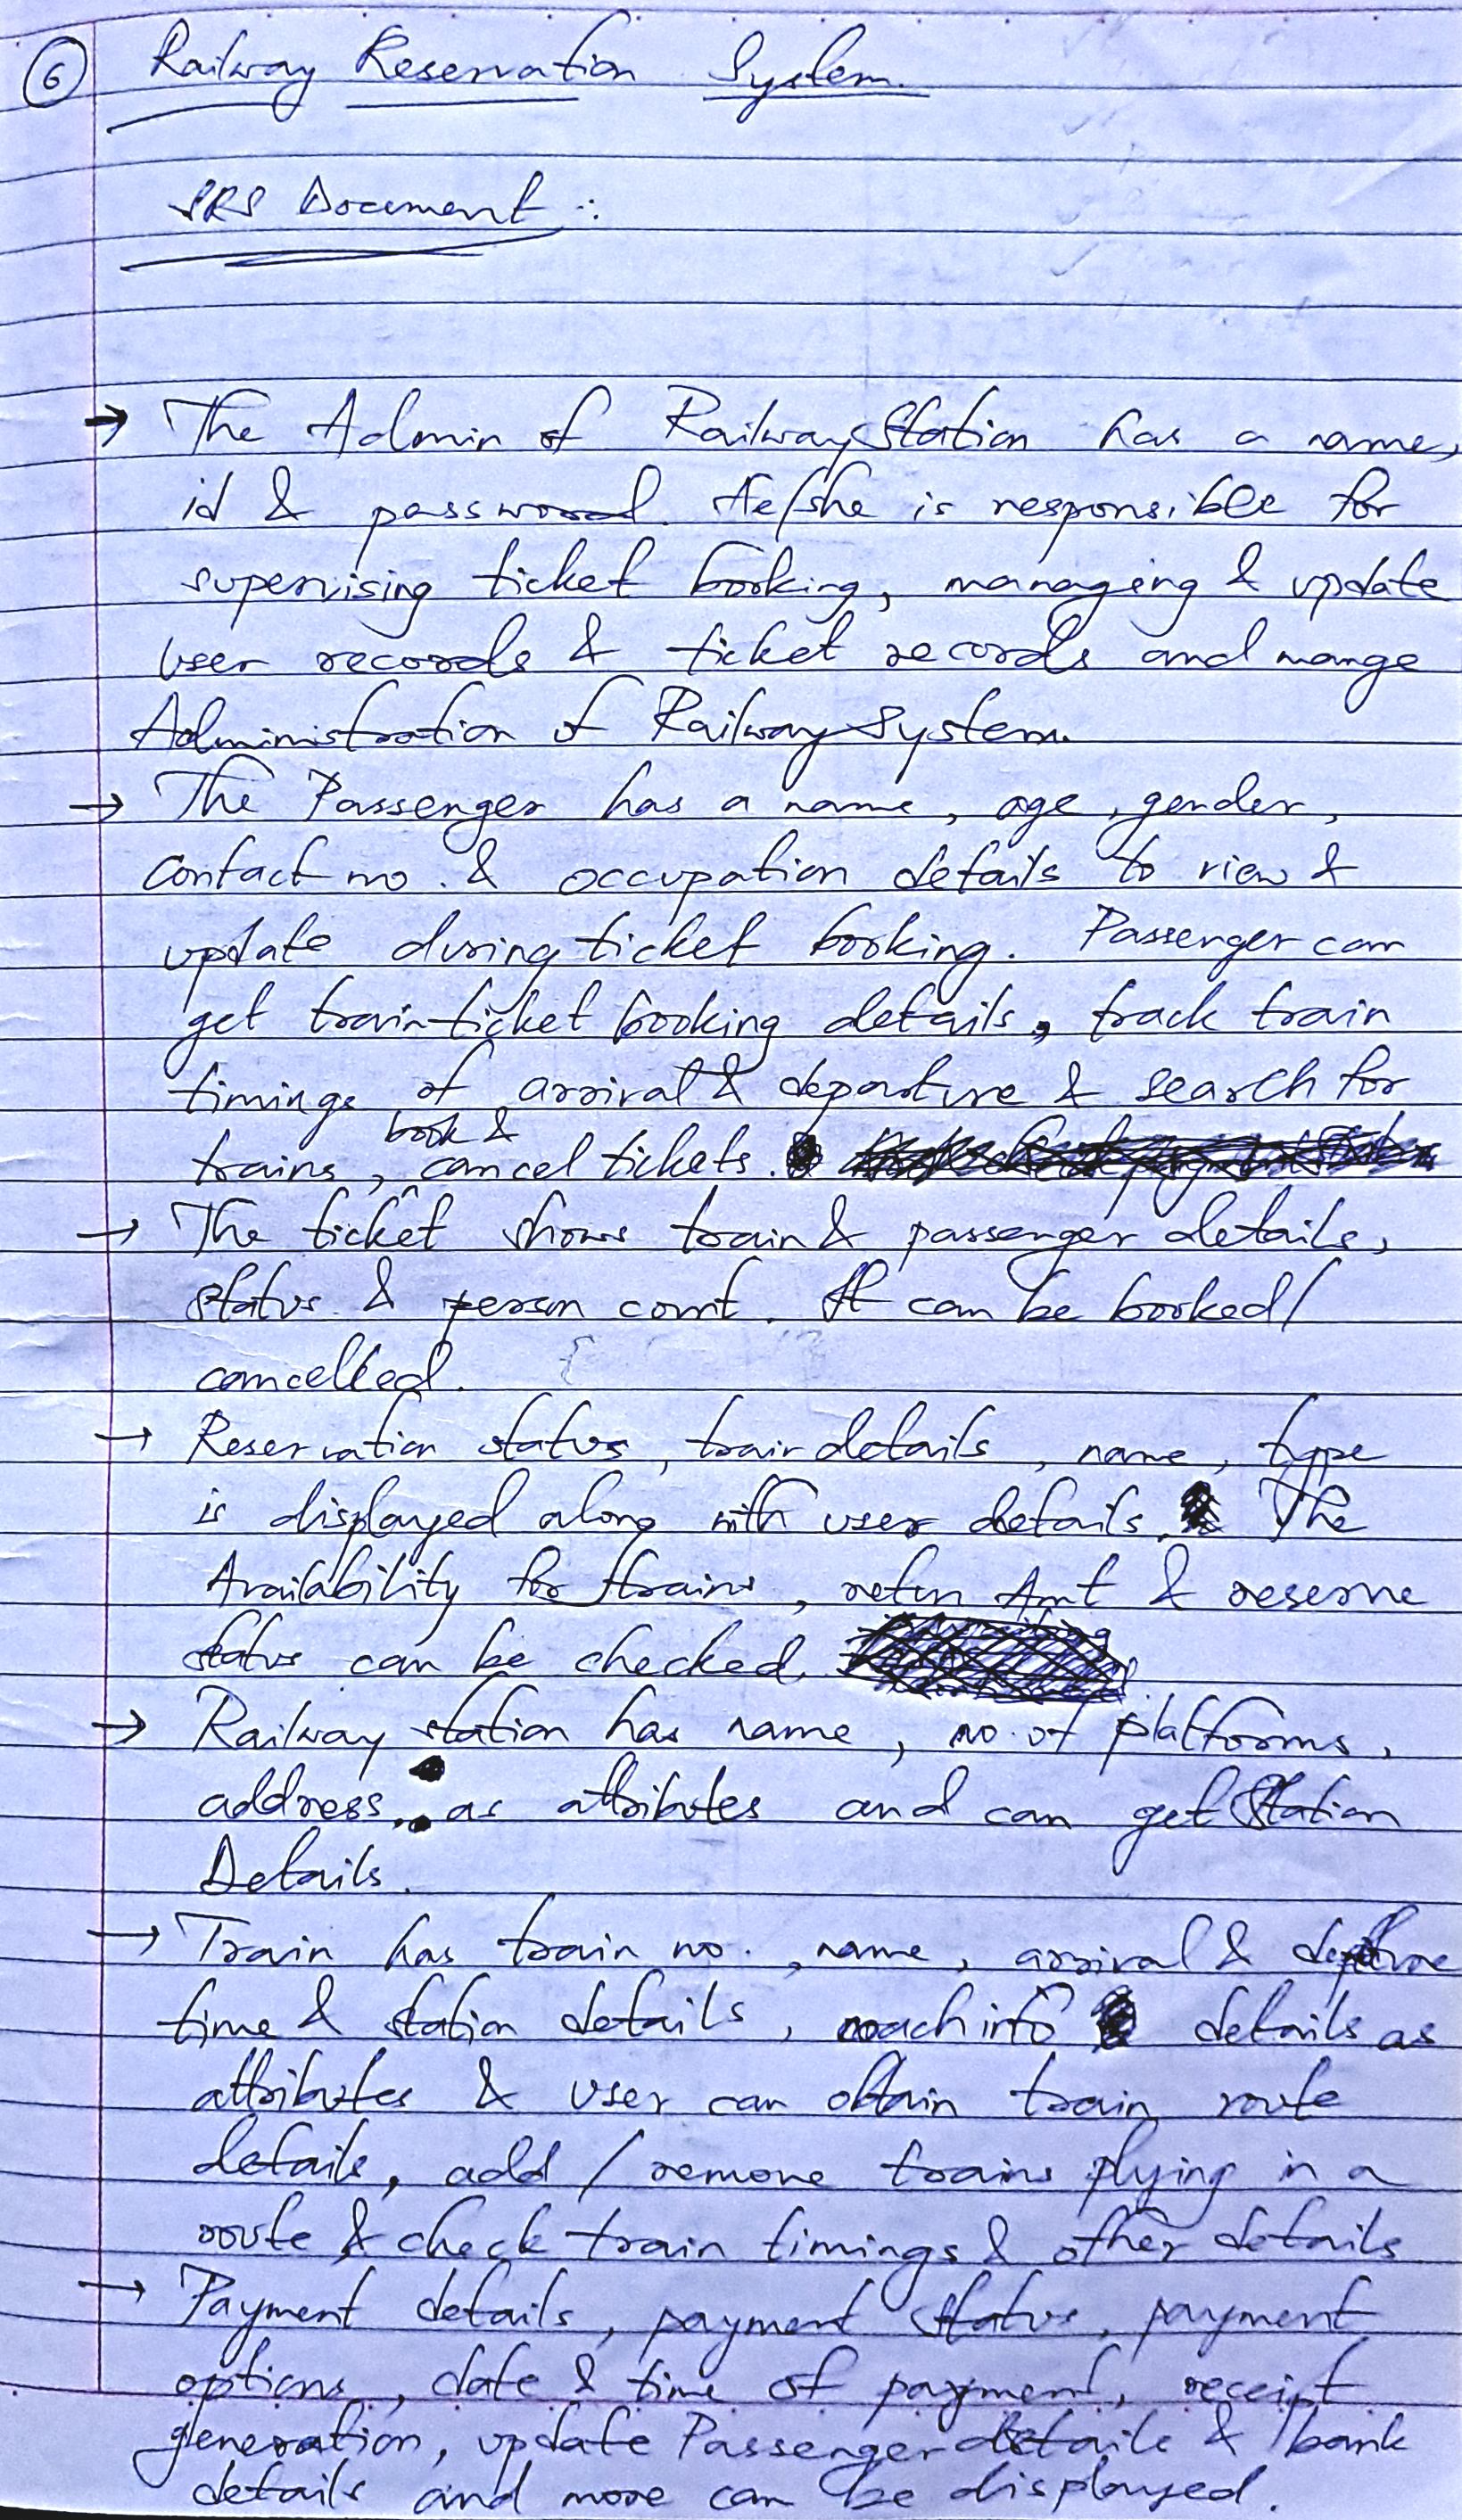 6 Railway Reservation System.
SRS Document :
→ The Admin of Railway Station has a name,
id & password. He/she is responsible for
supervising ticket booking, managing & update
user records & ticket records and mange
Administration of Railway System.
→ The Passenger has a name, age, gender,
contact no. & occupation details to view &
update during ticket booking. Passenger can
get train ticket booking details, track train
timings of arrival & departure & search for
trains, book & cancel tickets.
→ The ticket shows train & passenger details,
status. & person count. It can be booked/
cancelled.
→ Reservation status, train details, name, type
is displayed along with user details. The
Availability for trains, return Amt & reserve
status can be checked.
→ Railway station has name, no. of platforms,
address. as attributes and can get Station
Details.
→ Train has train no., name, arrival &
time & station details, coach info details as
attributes & user can obtain train route
details, add / remove trains plying in a
route & check train timings & other details
→ Payment details, payment status, payment
options, date & time of payment, receipt
generation, update Passenger details & bank
details and more can be displayed.